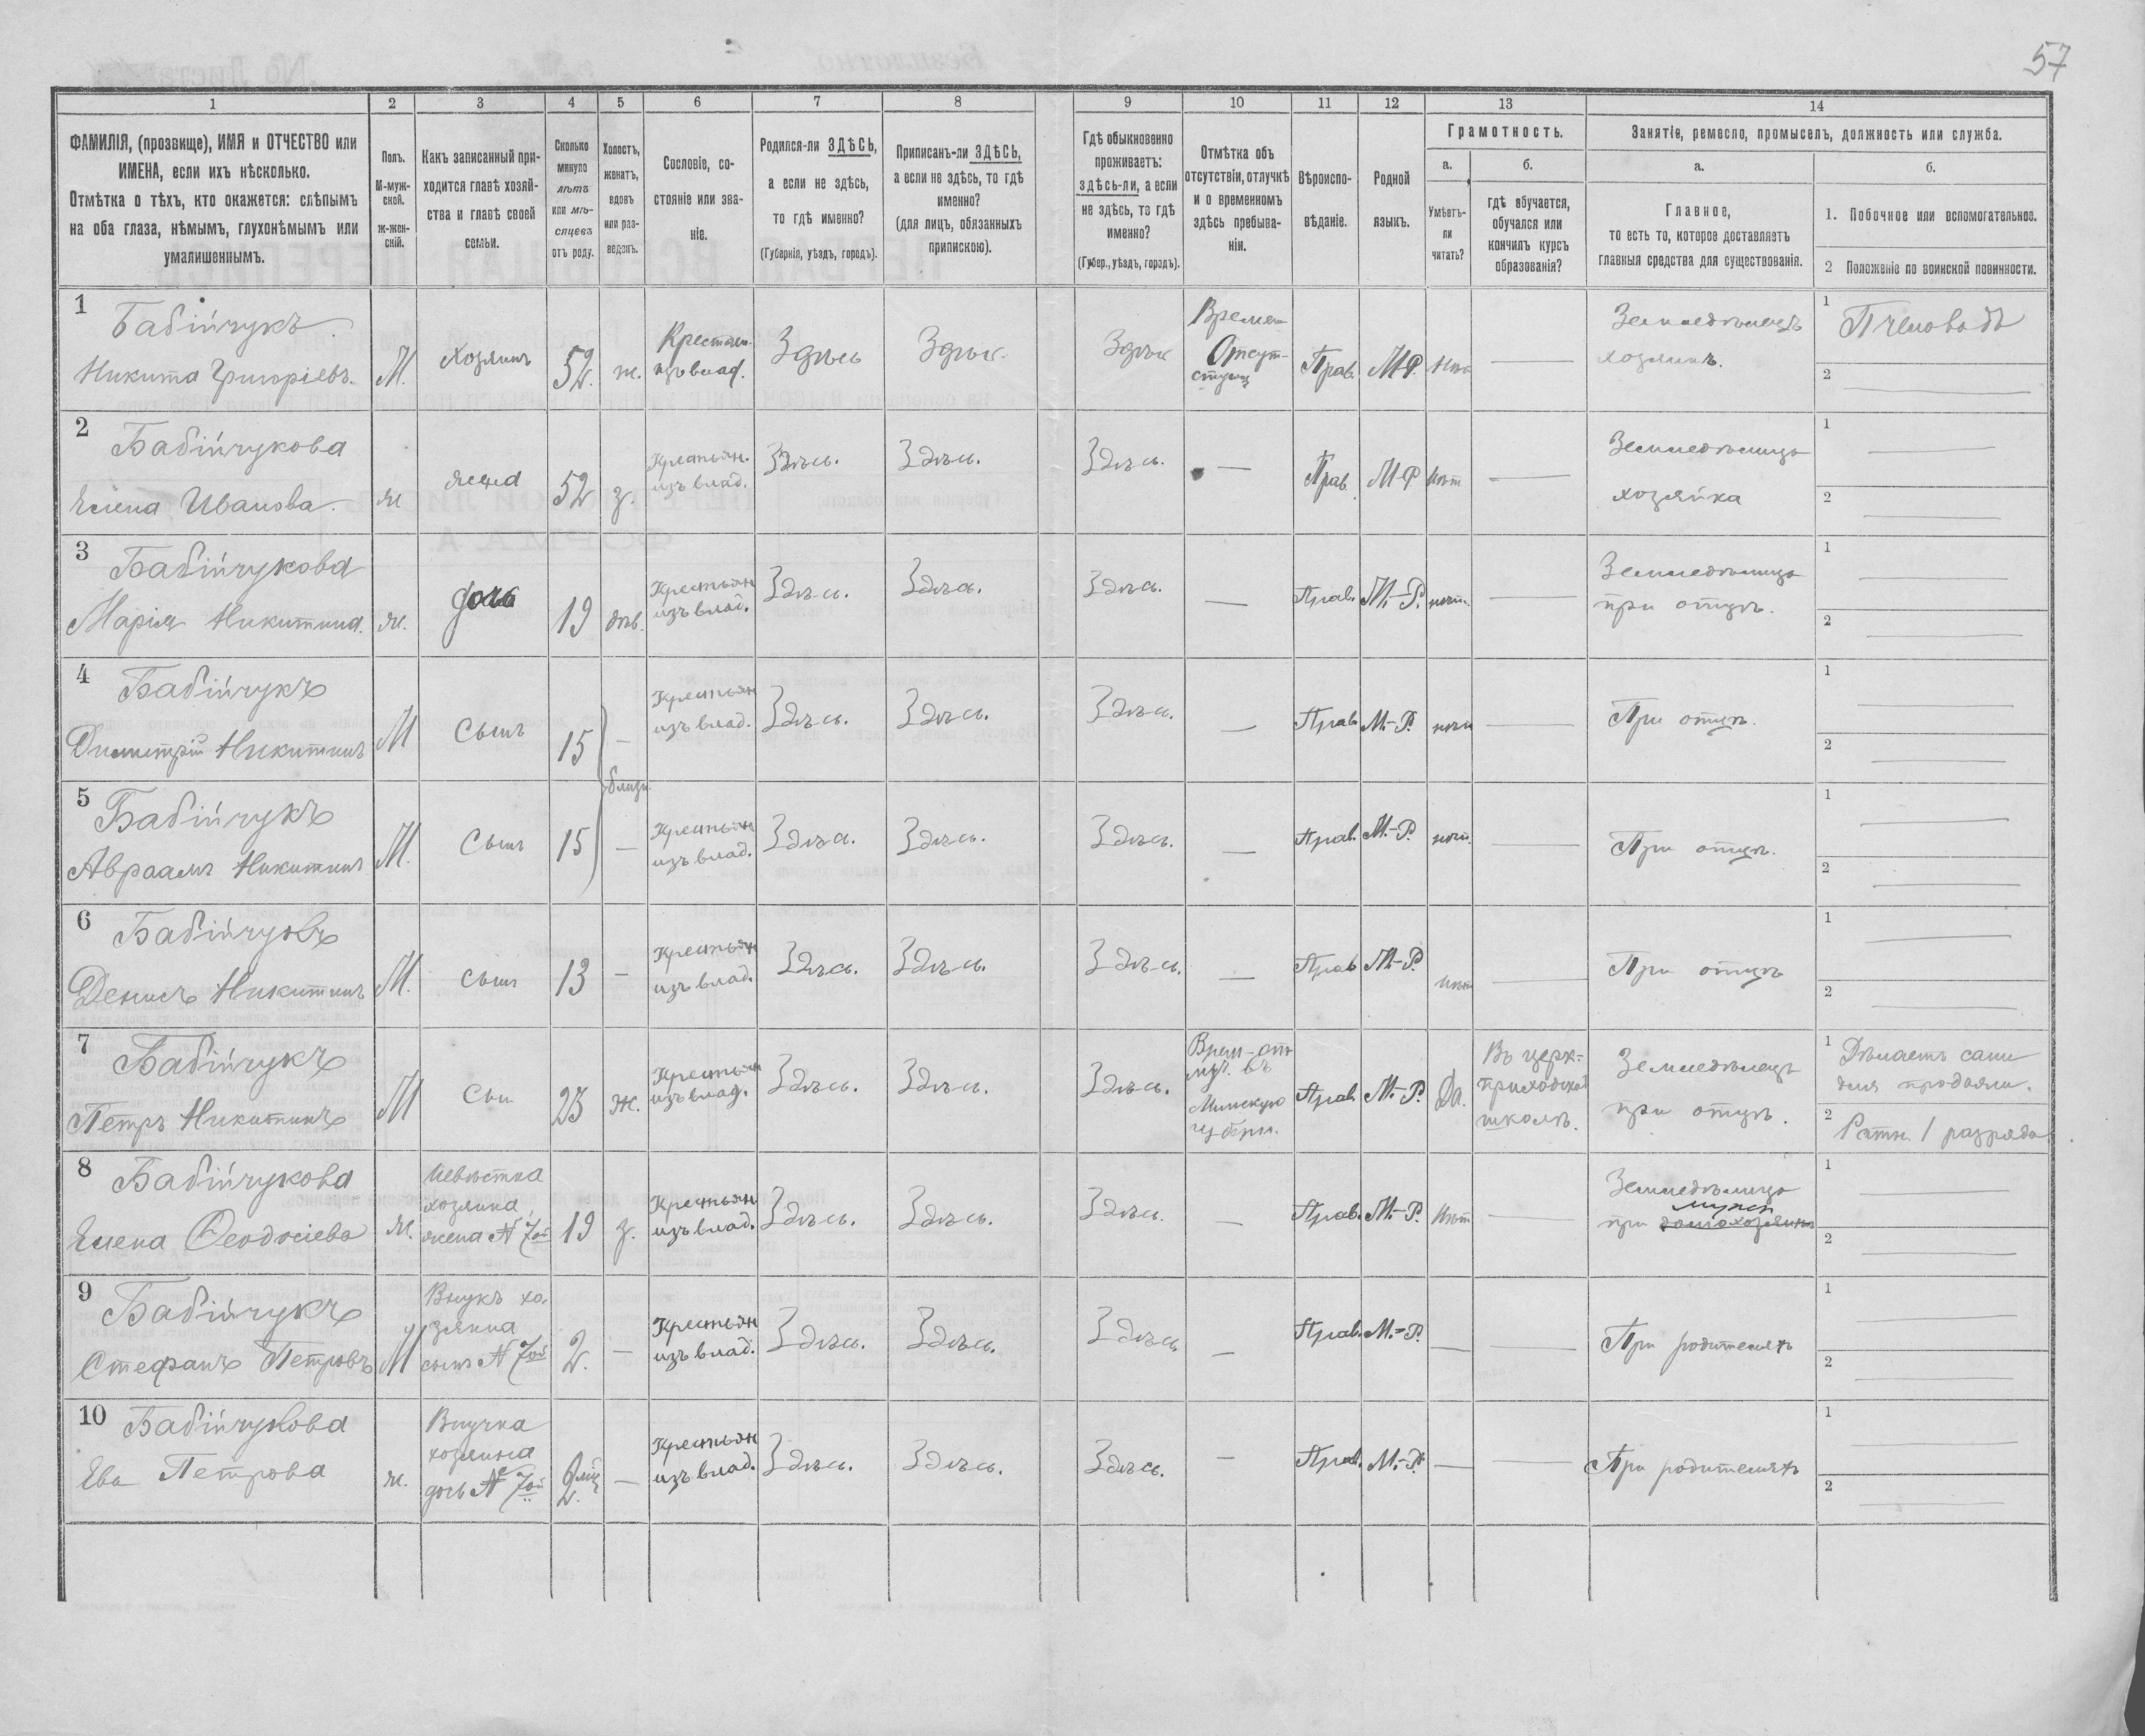 57
1 2 3 4 5 6 7 8 9 10 11 12 13 14
ФАМИЛІЯ, (прозвище), ИМЯ и ОТЧЕСТВО или
ИМЕНА, если ихъ нѣсколько.
Отмѣтка о тѣхъ, кто окажется: слѣпымъ
на оба глаза, нѣмымъ, глухонѣмымъ или
умалишеннымъ.
Полъ.
М-муж-
ской.
ж-жен-
скій.
Какъ записанный при-
ходится главѣ хозяй-
ства и главѣ своей
семьи.
Сколько
минуло
лѣтъ
или мѣ-
сяцевъ
отъ роду.
Холостъ,
женатъ,
вдовъ
или раз-
веденъ.
Сословіе, со-
стояніе или зва-
ніе.
Родился-ли ЗДѢСЬ,
а если не здѣсь,
то гдѣ именно?
(Губернія, уѣздъ, городъ).
Приписанъ-ли ЗДѢСЬ,
а если не здѣсь, то гдѣ
именно?
(для лицъ, обязанныхъ
припискою).
Гдѣ обыкновенно
проживаетъ:
здѣсь-ли, а если
не здѣсь, то гдѣ
именно?
(Губер., уѣздъ, городъ).
Отмѣтка объ
отсутствіи, отлучкѣ
и о временномъ
здѣсь пребыва-
ніи.
Вѣроиспо-
вѣданіе.
Родной
языкъ.
Грамотность.
а.
Умѣетъ-
ли
читать?
б.
гдѣ обучается,
обучался или
кончилъ курсъ
образованія?
Занятіе, ремесло, промыселъ, должность или служба.
а.
Главное,
то есть то, которое доставляетъ
главныя средства для существованія.
б.
1. Побочное или вспомогательное.
2 Положеніе по воинской повинности.
1
Бабійчукъ
Никита Григоріевъ.
М.
Хозяинъ
52.
ж.
Крестьян.
изъ влад.
Здѣсь
Здѣсь.
Здѣсь
Времен
Отсут-
ствуетъ
Прав.
М-Р.
нѣтъ
—
Земледѣлецъ
хозяинъ.
1 Пчеловодъ
2 —
2
Бабійчукова
Елена Иванова.
ж
жена
52
з.
Крестьян.
изъ влад.
Здѣсь.
Здѣсь.
Здѣсь.
—
Прав
М-Р
нѣт
—
Земледѣлица
хозяйка
1 —
2 —
3
Бабійчукова
Марія Никитина.
ж.
дочь
19
дѣв.
Крестьян
изъ влад.
Здѣсь.
Здѣсь.
Здѣсь.
—
Прав.
М.-Р.
нѣт.
—
Земледѣлица
при отцѣ.
1 —
2 —
4
Бабійчукъ
Димитрій Никитинъ
М
Сынъ
15
—
близн.
Крестьян
изъ влад.
Здѣсь.
Здѣсь.
Здѣсь.
—
Прав
М.-Р.
нѣт
—
При отцѣ.
1 —
2 —
5
Бабійчукъ
Авраамъ Никитинъ
М.
Сынъ
15
—
Крестьян
изъ влад.
Здѣсь.
Здѣсь.
Здѣсь.
—
Прав.
М.-Р.
нѣт.
—
При отцѣ.
1 —
2 —
6
Бабійчукъ
Денисъ Никитинъ
М.
Сынъ
13
—
Крестьян
изъ влад.
Здѣсь.
Здѣсь.
Здѣсь.
—
Прав
М-Р.
нѣт
—
При отцѣ
1 —
2 —
7
Бабійчукъ
Петръ Никитинъ
М
Сын
23
Ж.
Крестьян
изъ влад.
Здѣсь.
Здѣсь.
Здѣсь.
Врем-от
луч. въ
Минскую
губерн.
Прав.
М.-Р.
Да.
Въ церк-
приходской
школѣ.
Земледѣлецъ
при отцѣ.
1 Дѣлаетъ сани
для продажи.
2 Ратн. 1 разряда
8
Бабійчукова
Елена Ѳеодосіева
ж.
Невѣстка
хозяина,
жена № 7ой
19
з.
Крестьян
изъ влад.
Здѣсь.
Здѣсь.
Здѣсь.
—
Прав.
М.-Р.
Нѣт
—
Земледѣлица
мужѣ
при домохозяинѣ
1 —
2 —
9
Бабійчукъ
Стефанъ Петровъ
М
Внукъ хо-
зяина
сынъ № 7ой
2.
—
Крестьян
изъ влад.
Здѣсь.
Здѣсь.
Здѣсь
—
Прав.
М.-Р.
—
—
При родителяхъ
1 —
2 —
10
Бабійчукова
Ева Петрова
ж.
Внучка
хозяина
дочь № 7ой
2 мѣс.
—
Крестьян
изъ влад.
Здѣсь.
Здѣсь.
Здѣсь.
—
Прав.
М.-Р.
—
—
При родителяхъ
1 —
2 —